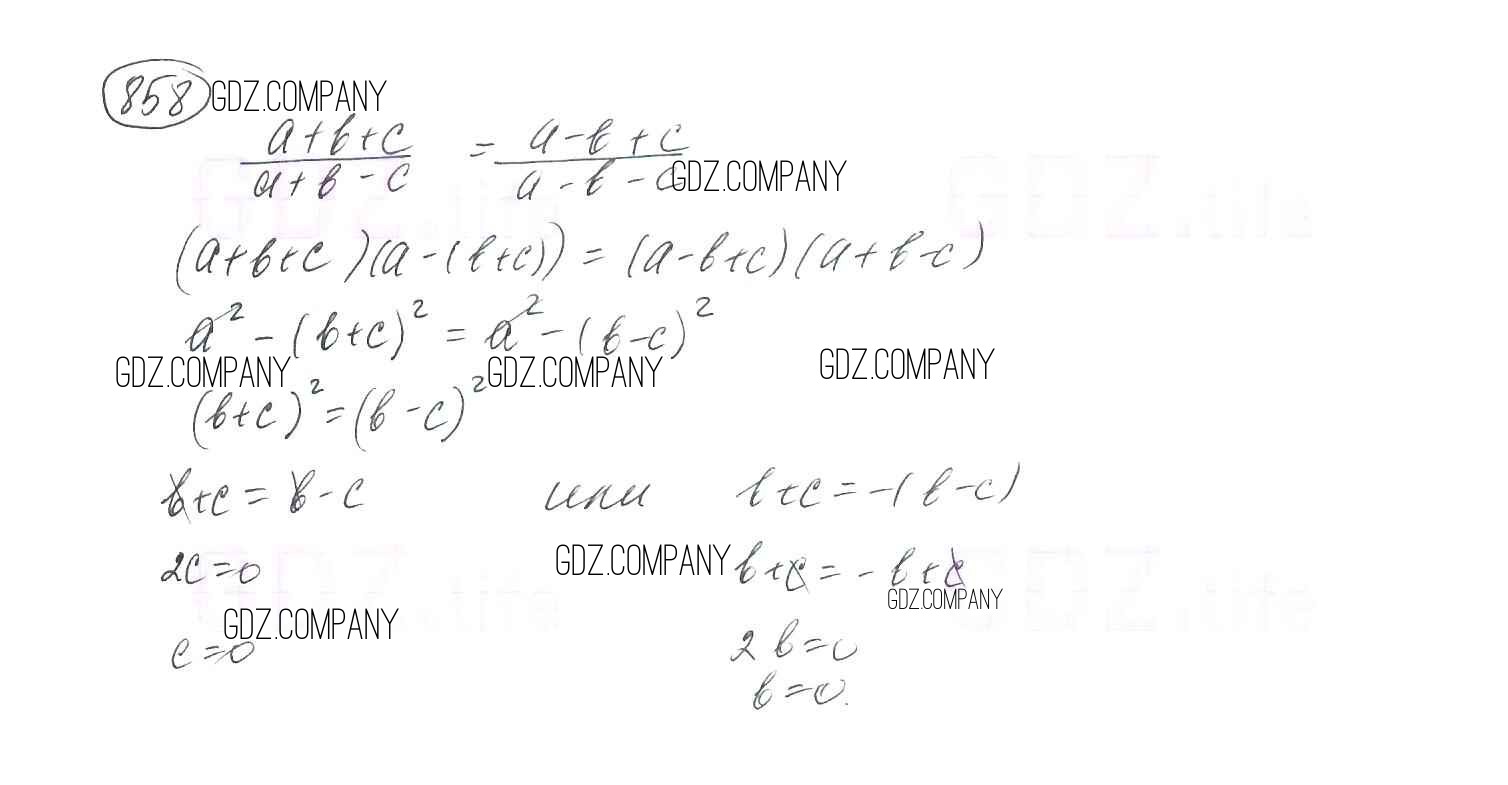 858 GDZ.COMPANY
a+b+c / a+b-c = a-b+c / a-b-c GDZ.COMPANY
GDZ.life GDZ.life
(a+b+c)(a-(b+c)) = (a-b+c)(a+b-c)
a² - (b+c)² = a² - (b-c)²
GDZ.COMPANY GDZ.COMPANY GDZ.COMPANY
(b+c)² = (b-c)²
b+c = b-c или b+c = -(b-c)
2c=0 GDZ.COMPANY b+c = -b+c
GDZ.life GDZ.life
GDZ.COMPANY GDZ.COMPANY
c=0 2b=0
b=0.